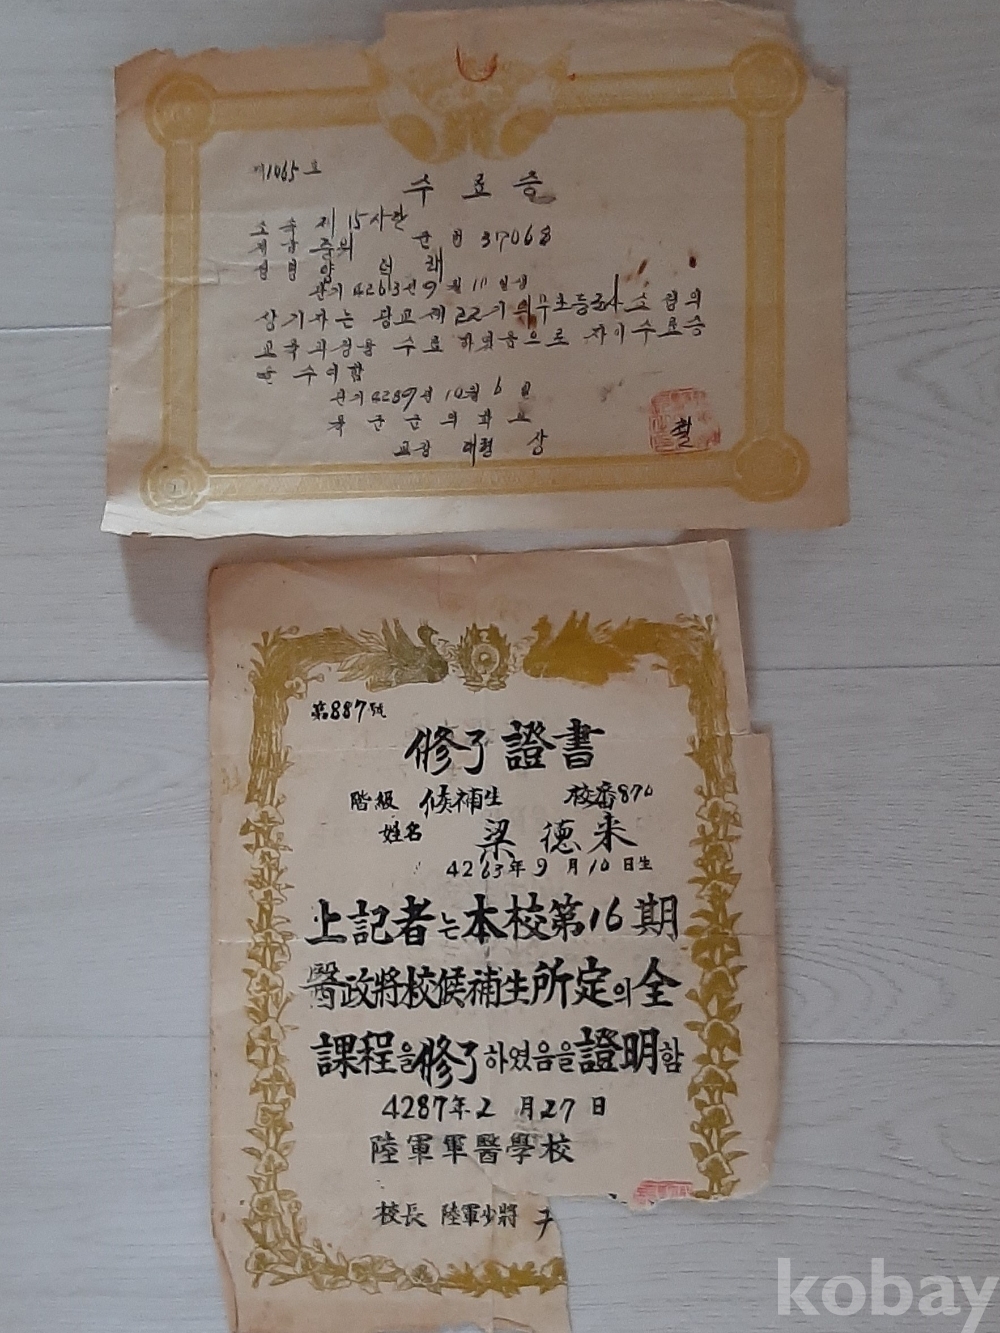 제1065호
수료증
소속 제15사단
계급 중위 군번 37068
성명 양덕래
단기 4263년 9월 10일생
상기자는 당교 제22기 의무초등군사 소정의
교육과정을 수료 하였음으로 자이수료증
을 수여함
단기 4289년 10월 6일
육군군의학교
교장 대령
第887號
修了證書
階級 候補生 校番870
姓名 梁德來
4263年9月10日生
上記者는本校第16期
醫政將校候補生所定의全
課程을修了하였음을證明함
4287年2月27日
陸軍軍醫學校
校長 陸軍少將 尹
kobay